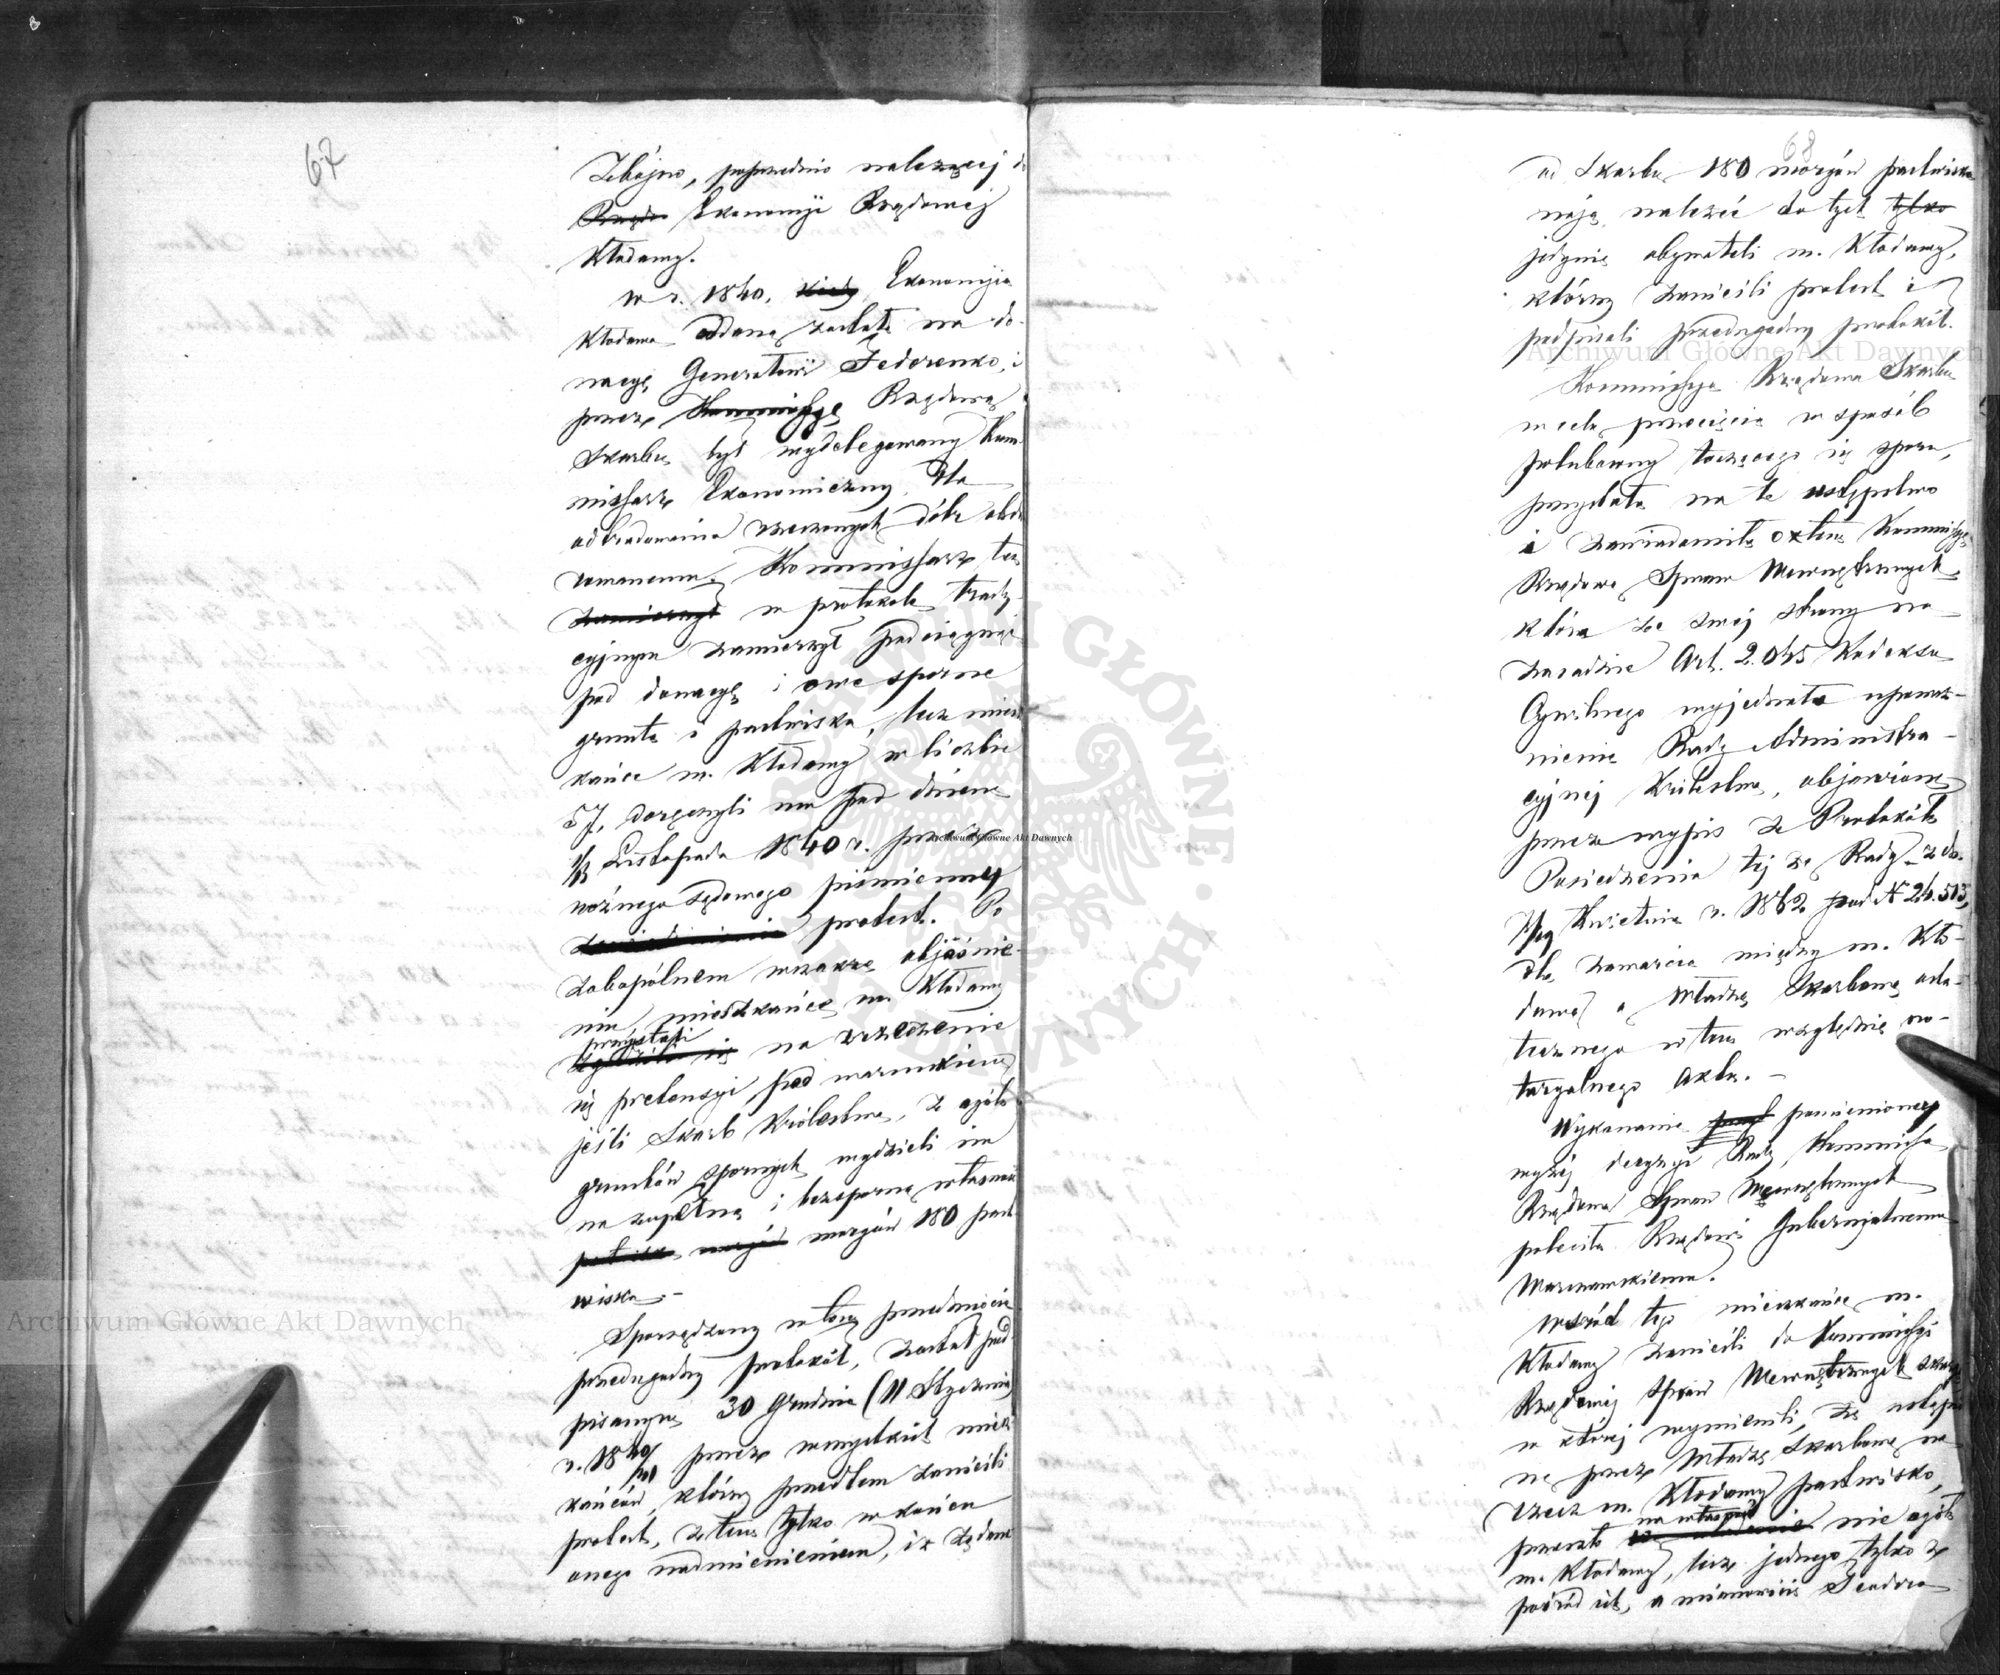 67
Zbójno, poprzednio należącej do
Rządu Ekonomii Rządowej
Kłodawy.
W r. 1840. kiedy Ekonomija
Kłodawa oddaną została na do-
nacyę Generałowi Fedorenko, i
przez Kommissyę Rządową
Skarbu był wydelegowany Kom-
missarz Ekonomiczny dla
odtradowania rzeczonych dóbr obda-
rowanemu. Kommissarz ten
zamierzył w protokole trady-
cyjnym zamierzył podciągnąć
pod donacyę i owe sporne
grunta i pastwiska, lecz miesz-
kańce m. Kłodawy w liczbie
57, doręczyli mu pod dniem
1/13 Listopada 1840 r. przez
woźnego sądowego piśmienny
protest. Po
zobopólnem wszakże objaśnie-
niu, mieszkańce m. Kłodawy
przystali
zgodzili się na zrzeczenie
się pretensyi pod warunkiem
jeśli Skarb Królestwa, z ogółu
gruntów spornych wydzieli im
na zupełną i bezsporną własność
morgów 180 past-
wiska.-
Sporządzony w tem przedmiocie
przedugodny protokół, został pod-
pisanym 30 Grudnia (11 Stycznia)
r. 1840/41 przez wszystkich miesz-
kańców, którzy przedtem zanieśli
protest, z tem tylko w końcu
onego nadmienieniem, iż żądane
68
od Skarbu 180 morgów pastwiska
mają należeć do tych tylko
jedynie obywateli m. Kłodawy,
którzy zanieśli protest i
podpisali przedugodny protokół.
Kommissya Rządowa Skarbu
w celu przecięcia w sposób
polubowny toczącego się sporu,
przystała na te ustępstwo
i zawiadomiła o tem Kommissyę
Rządową Spraw Wewnętrznych,
która ze swej strony na
zasadzie Art. 2.045 Kodeksu
Cywilnego wyjednała upoważ-
nienie Rady Administra-
cyjnej Królestwa, objawione
przez wypis z Protokółu
Posiedzenia tej że Rady z d.
Kwietnia r. 1862 pod N 24.513,
dla zawarcia między m. Kło-
dawą a Władzą Skarbową osta-
tecznego w tem względzie no-
taryalnego aktu. -
Wykonanie pomienionej
wyżej decyzyi Rady, Kommissya
Rządowa Spraw Wewnętrznych
poleciła Rządowi Gubernjalnemu
Warszawskiemu.
Wśród tego mieszkańce m.
Kłodawy zanieśli do Kommissyi
Rządowej Spraw Wewnętrznych skargę
w której wymienili, że ustąpio-
ne przez Władzę Skarbową na
rzecz m. Kłodawy pastwisko,
na własność
przeszło nie ogółu
m. Kłodawy, lecz jednego tylko z
pośród ich, a mianowicie Teodora
Archiwum Główne Akt Dawnych
Archiwum Główne Akt Dawnych
Archiwum Główne Akt Dawnych
ARCHIWUM GŁÓWNE · AKT DAWNYCH ·